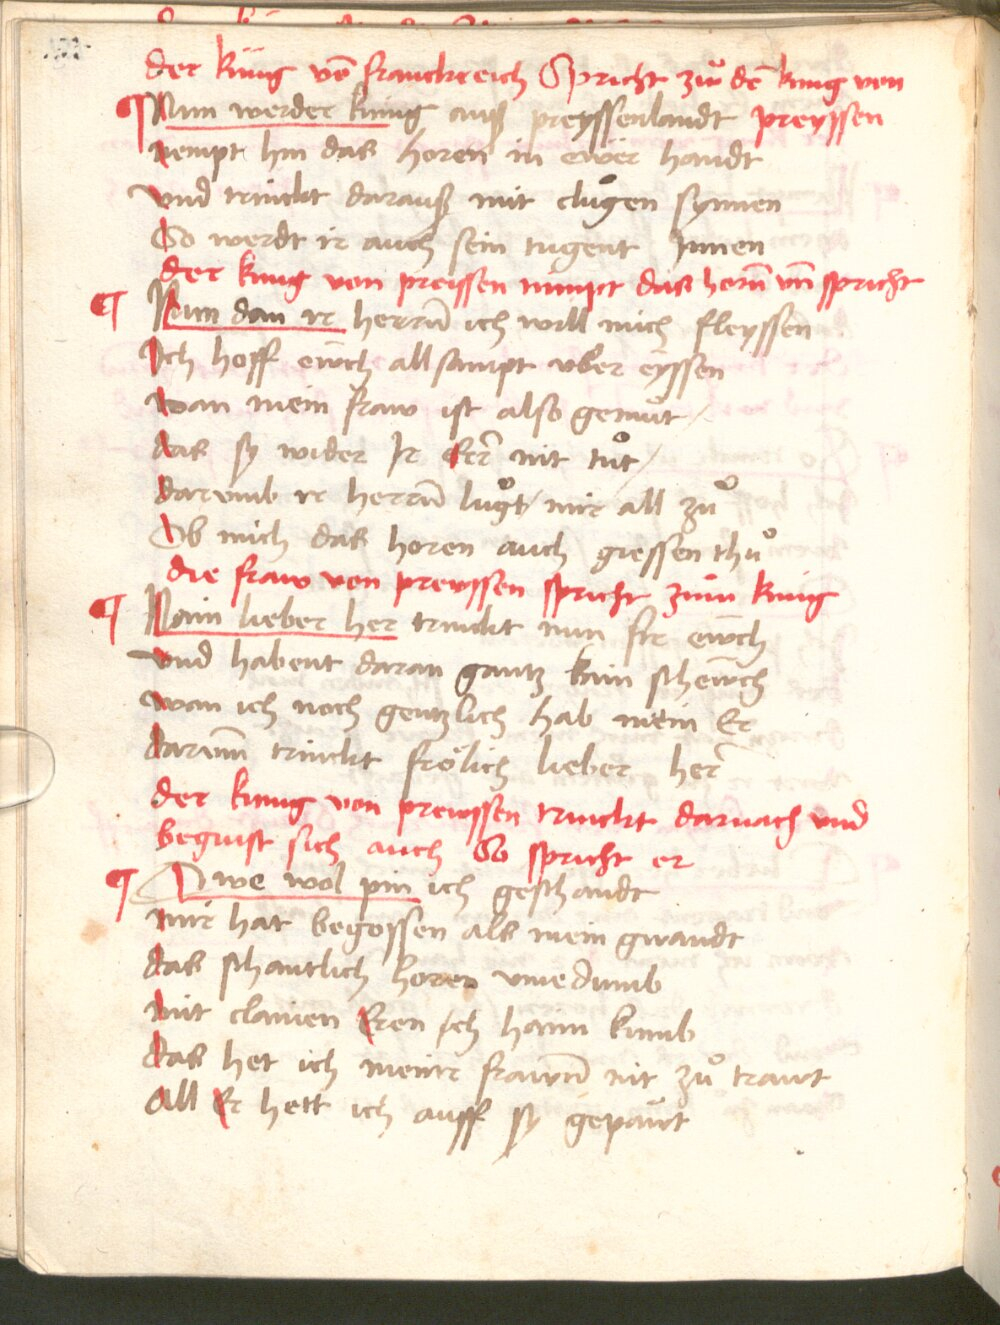 der küng vō franckreich Spricht zuͦ dē küng von
¶ Nun werder küng auß preyssenlandt preyssen
nempt hin das horen in ewer handt
vnd trinckt darauß mit cluͦgen synnen
So werdt ir auch sein tugent Jnnen
der kung von preissen nimpt das horn̄ vn̄ spricht
¶ Nun dan ir herrn̄ ich will mich fleyssen
Ich hoff ewch all sampt vber eyssen
wan mein fraw ist also gemüt /
das sy wider Ir Eer nit tuͦt /
darvmb ir herrn̄ luͦgt / mir all zuͦ
Ob mich das horen auch giessen thuͦ
die fraw von preyssen spricht zuͦm küng
¶ Nain lieber her trinckt nun fir ewch
vnd habent daran gantz kain schewch
wan ich noch gentzlich hab mein Er
darum̄ trinckt frölich lieber her
der kung von preyssen trinckt darnach vnd
beguist sich auch So spricht er
¶ Awe wol pin ich geschandt
mir hat begossen als mein gwandt
das schantlich horen vmedumb
mit clainen Eren ich haim kumb
das het ich meinr frawn̄ nit zuͦ trawt
All Er hett ich auff sy gepawt